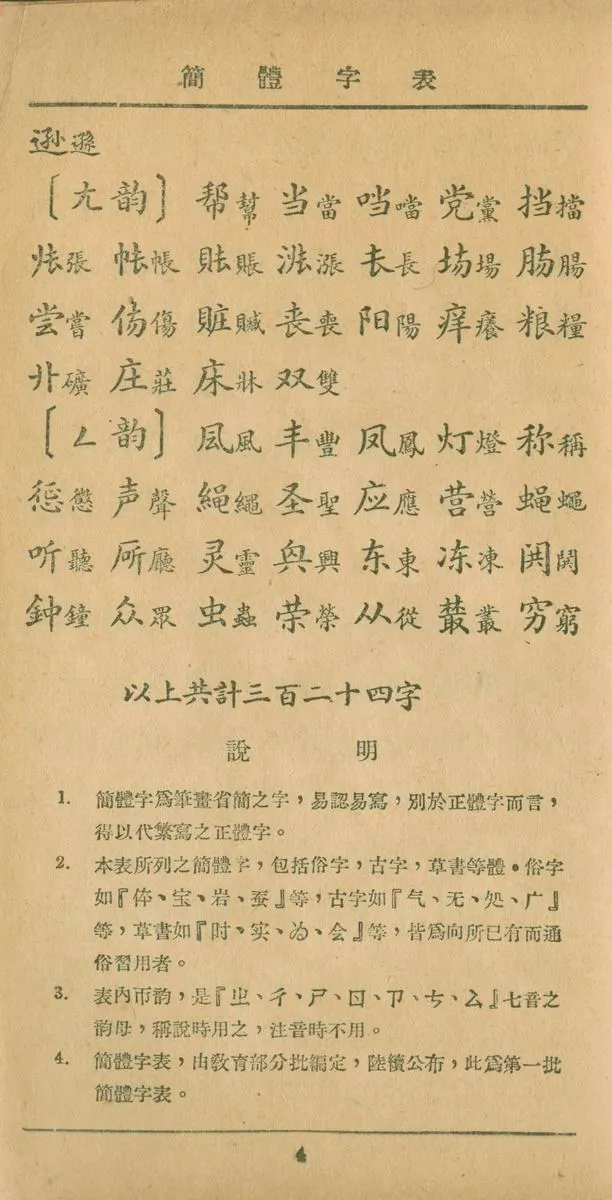 簡體字表
逊遜
〔ㄤ韵〕 帮幫 当當 噹 党黨 挡擋
張 帐帳 賬 漲 長 场場 肠腸
尝嘗 伤傷 赃贓 丧喪 阳陽 痒癢 粮糧
卝礦 庄莊 床牀 双雙
〔ㄥ韵〕 凬風 丰豐 凤鳳 灯燈 称稱
惩懲 声聲 绳繩 圣聖 应應 营營 蝇蠅
听聽 廳 灵靈 興 东東 冻凍 閧
鈡鐘 众眾 虫蟲 荣榮 从從 叢 穷窮
以上共計三百二十四字
說明
1. 簡體字爲筆畫省簡之字,易認易寫,別於正體字而言,
得以代繁寫之正體字。
2. 本表所列之簡體字,包括俗字,古字,草書等體。俗字
如『体、宝、岩、蚕』等,古字如『气、无、処、广』
等,草書如『时、实、为、会』等,皆爲向所已有而通
俗習用者。
3. 表內帀韵,是『ㄓ、ㄔ、ㄕ、ㄖ、ㄗ、ㄘ、ㄙ』七音之
韵母,稱說時用之,注音時不用。
4. 簡體字表,由敎育部分批編定,陸續公布,此爲第一批
簡體字表。
4